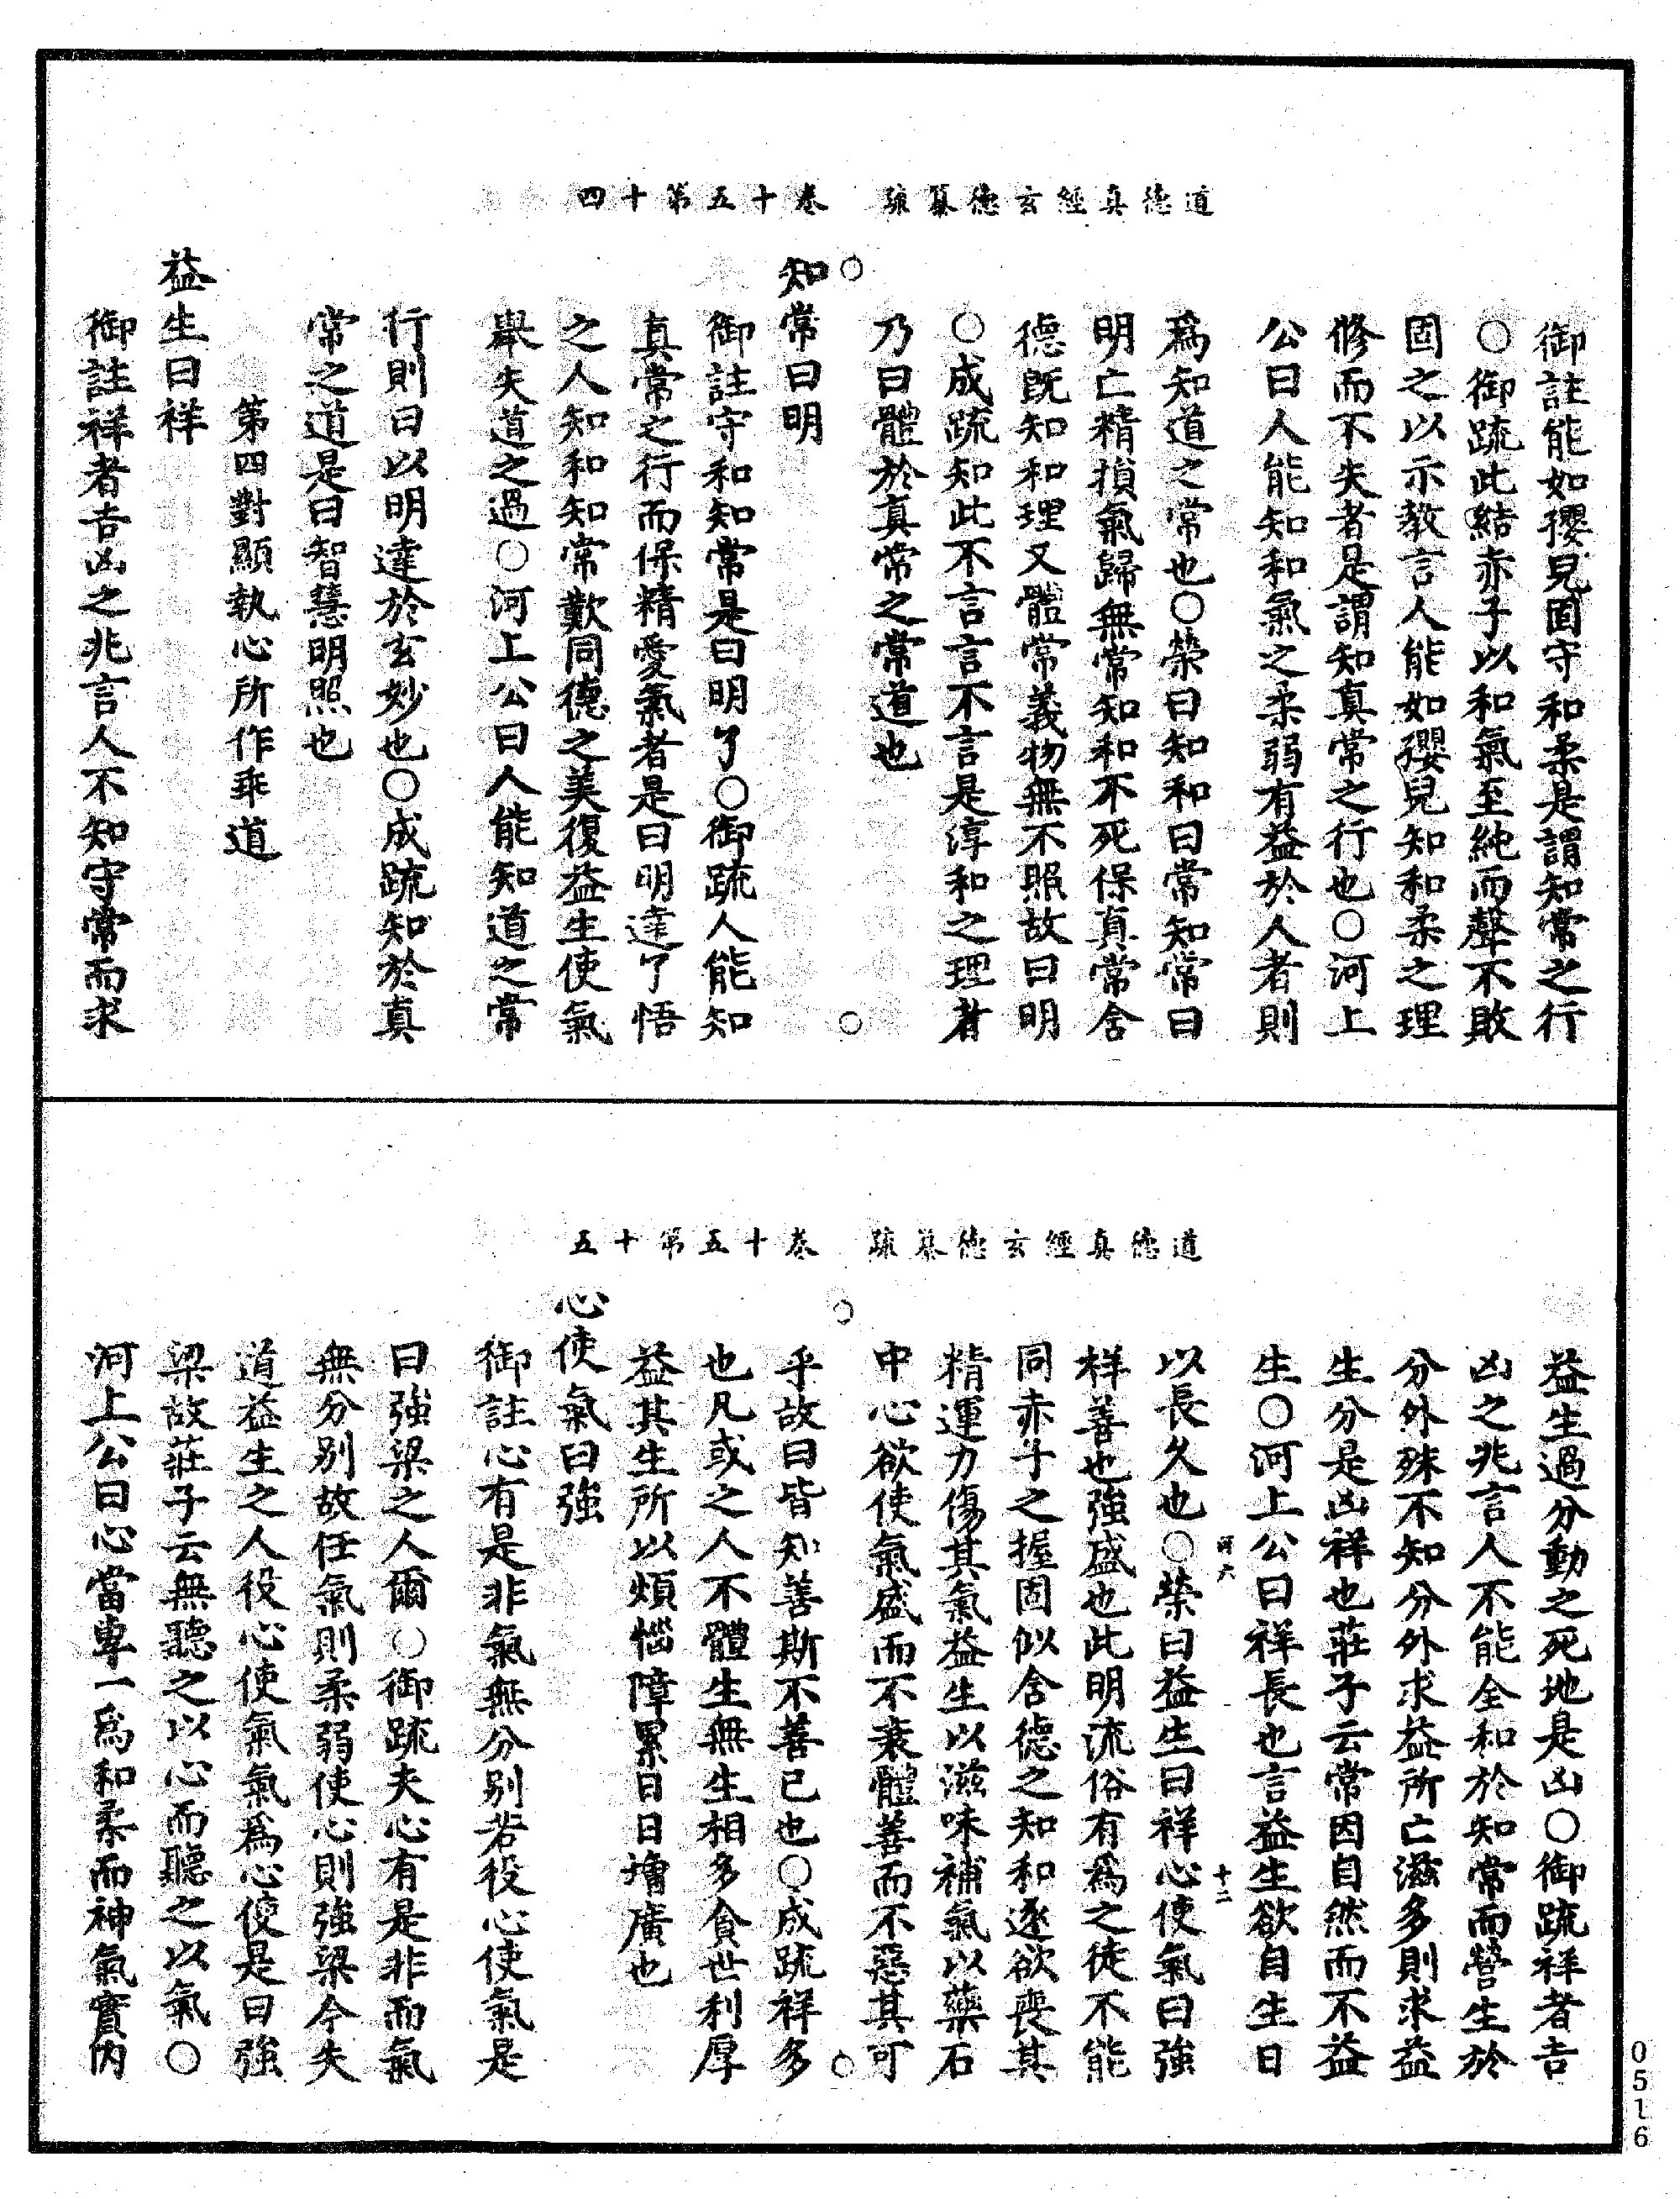 道德真經玄德纂疏　卷十五第十四
御註能如孾兒固守和柔是謂知常之行
○御疏此結赤子以和氣至純而聲不敗
固之以示教言人能如孾兒知和柔之理
修而不失者是謂知真常之行也○河上
公曰人能知和氣之柔弱有益於人者則
爲知道之常也○榮曰知和曰常知常曰
明亡精損氣歸無常知和不死保真常含
德既知和理又體常義物無不照故曰明
○成疏知此不言言不言是淳和之理者
乃曰體於真常之常道也
知常曰明
御註守和知常是曰明了○御疏人能知
真常之行而保精愛氣者是曰明達了悟
之人知和知常歎同德之美復益生使氣
舉失道之過○河上公曰人能知道之常
行則曰以明達於玄妙也○成疏知於真
常之道是曰智慧明照也
第四對顯執心所作乖道
益生曰祥
御註祥者吉凶之兆言人不知守常而求
道德真經玄德纂疏　卷十五第十五
益生過分動之死地是凶○御疏祥者吉
凶之兆言人不能全和於知常而營生於
分外殊不知分外求益所亡滋多則求益
生分是凶祥也莊子云常因自然而不益
生○河上公曰祥長也言益生欲自生日
以長久也○榮曰益生曰祥心使氣曰強
祥善也強盛也此明流俗有爲之徒不能
同赤子之握固似含德之知和逐欲喪其
精運力傷其氣益生以滋味補氣以藥石
中心欲使氣盛而不衰體善而不惡其可
乎故曰皆知善斯不善已也○成疏祥多
也凡或之人不體生無生相多貪世利厚
益其生所以煩惱障累日日增廣也
心使氣曰強
御註心有是非氣無分别若役心使氣是
曰強梁之人爾○御疏夫心有是非而氣
無分别故任氣則柔弱使心則強梁今失
道益生之人役心使氣氣爲心使是曰強
梁故莊子云無聽之以心而聽之以氣○
河上公曰心當專一爲和柔而神氣實内
十二
0516